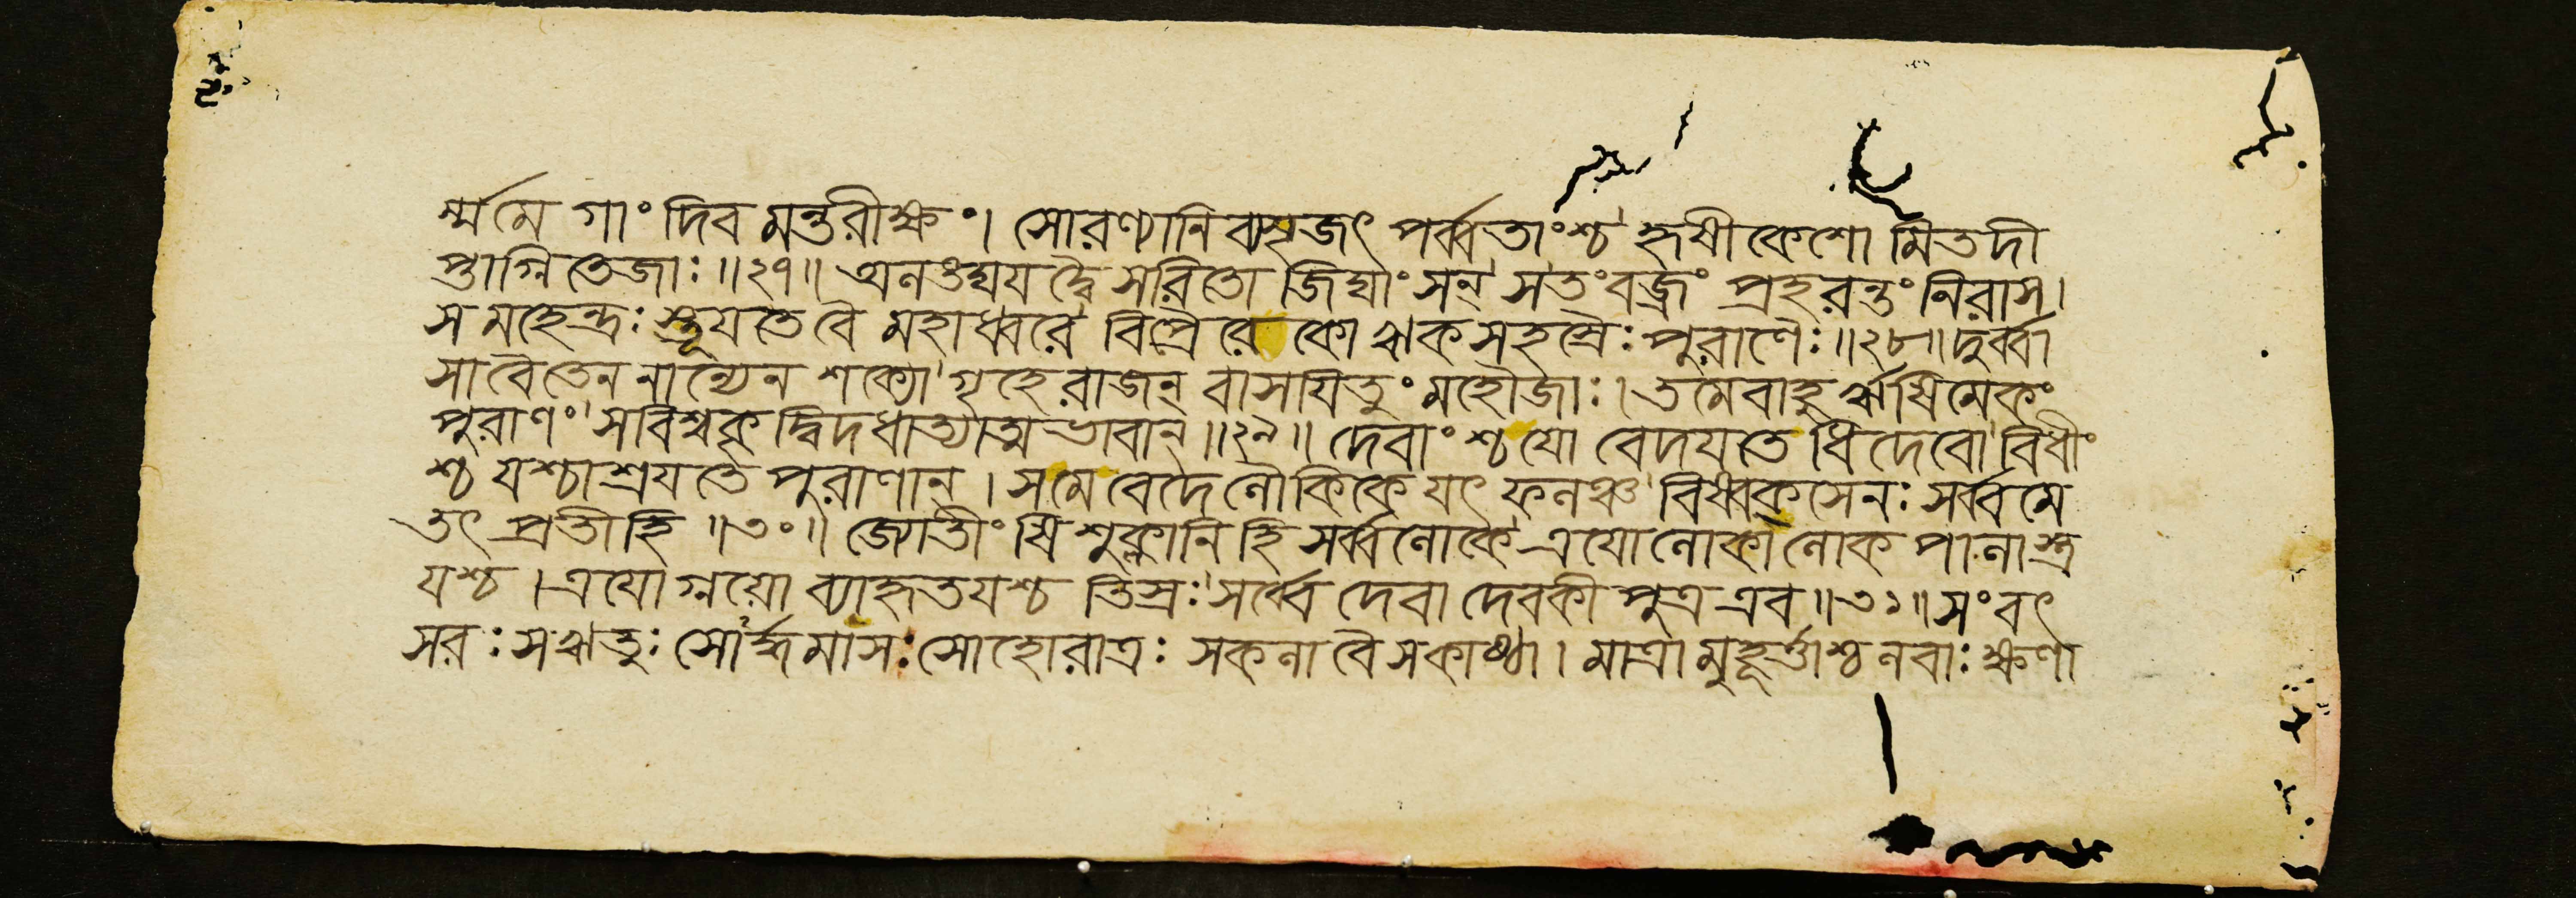 র্ম্মমে গাং দিব মন্তরীক্ষং। সোরণ্যানি ব্যসৃজৎ পর্ব্বতাংশ্চ হৃষীকেশো মিতদী
প্তাগ্নিতেজাঃ॥২৭॥ অলঙ্ঘ্যযদ্বৈ সরিতো জিঘাংসন্ সতং বজ্রং প্রহরন্তং নিরাস।
স মহেন্দ্রঃ স্তূযতে বৈ মহাধ্বরে বিপ্রৈরেকো ঋকসহস্রৈঃ পুরাণৈঃ॥২৮॥ দুর্ব্বা
সা বৈ তেন নান্যেন শক্যো গৃহে রাজন্ বাসযিতুং মহৌজাঃ। তমেবাহু ঋষিমেকং
পুরাণং স বিশ্বকৃদ্বিদধাত্যাত্মভাবান্॥২৯॥ দেবাংশ্চ যো বেদযতে ধিদেবো বিধীং
শ্চ যশ্চাশ্রযতে পুরাণান্। সমে বেদে লৌকিকে যৎ ফলঞ্চ বিষ্বক্সেনঃ সর্ব্বমে
তৎ প্রতীহি॥৩০॥ জ্যোতীংষি শুক্লানি হি সর্ব্বলোকে ত্রযো লোকা লোকপালাস্ত্র
যশ্চ। ত্রযোগ্নয়ো ব্যাহৃতযশ্চ তিস্রঃ সর্ব্বে দেবা দেবকীপুত্র এব॥৩১॥ সংবৎ
সরঃ স ঋতুঃ সোর্দ্ধমাসঃ সোহোরাত্রঃ সকলা বৈ সকাষ্ঠা। মাত্রা মুহূর্ত্তাশ্চ লবাঃ ক্ষণা